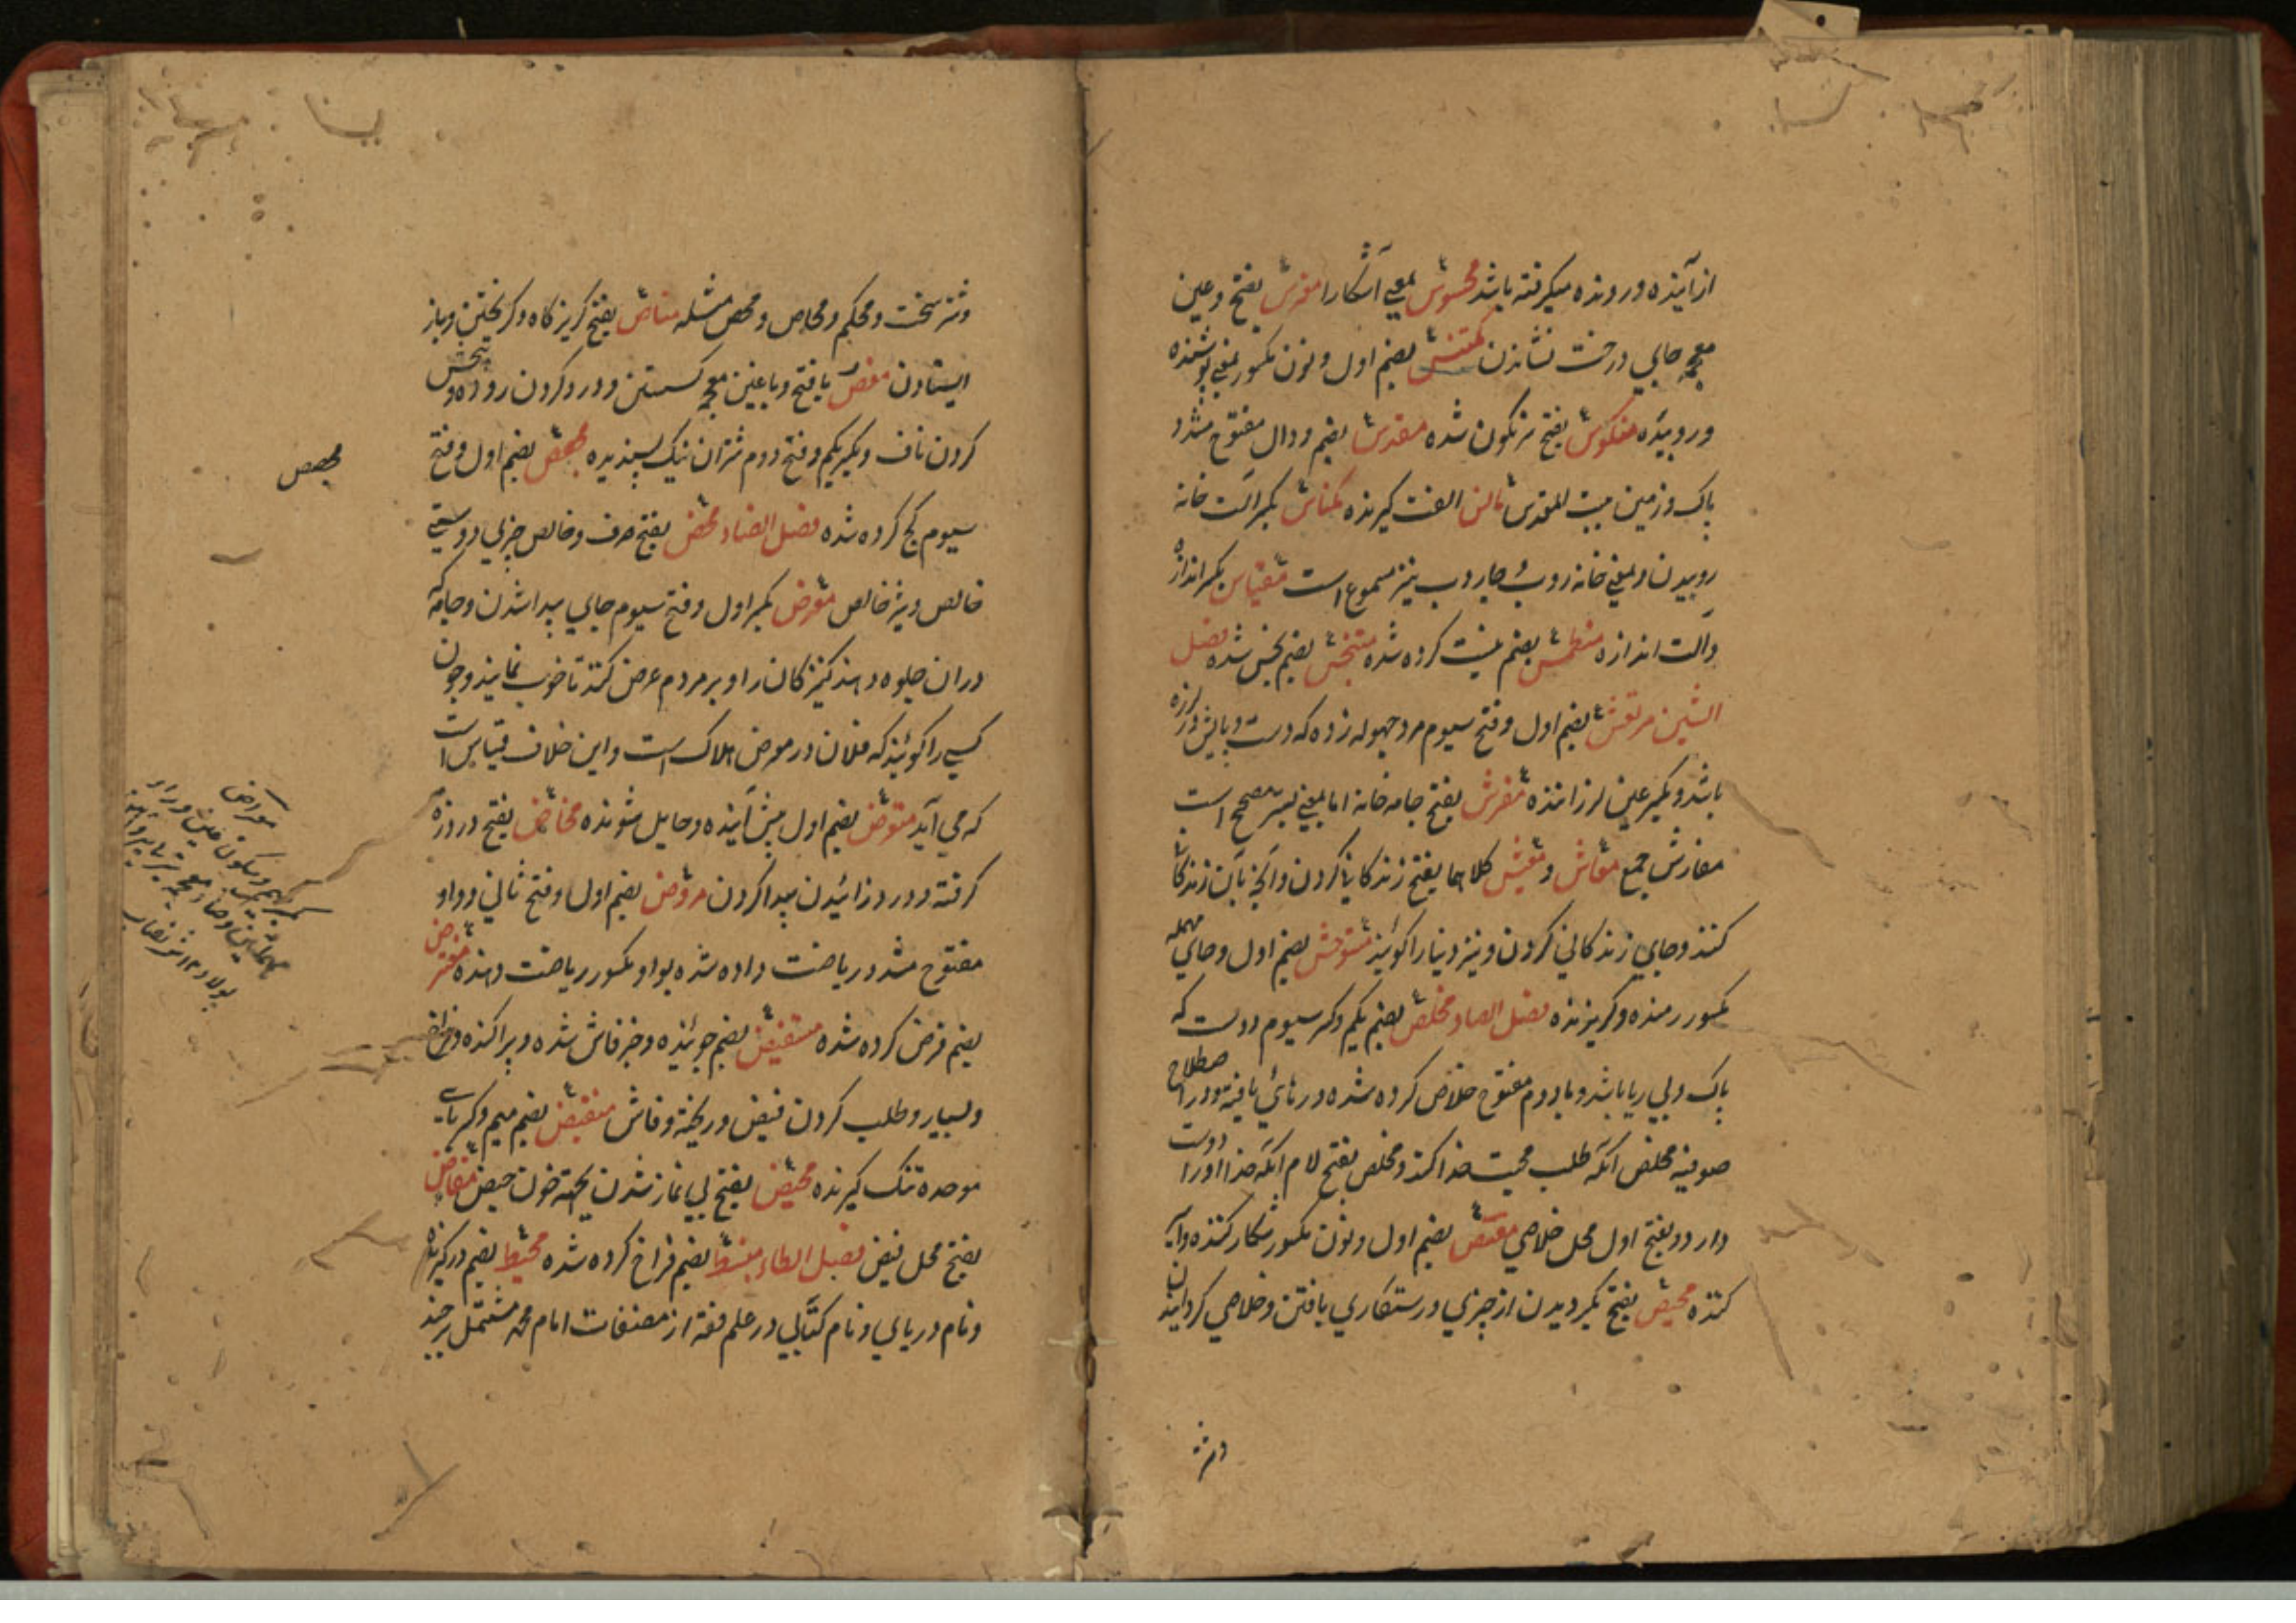 از آینده و رونده میگرفته باشد محسوس بمعنی آشکارا مغرس بفتح و عین
معجمه جای درخت نشاندن مکتنس بضم اول و نون مکسور بمعنی پوشنده
و روبیده منکوس بفتح سرنگون شده مقدس بضم و دال مفتوح مشدد
پاک و زمین بیت المقدس الفت گیرنده مکناس بکسر آلت خانه
روبیدن و بمعنی خانه روب و جاروب نیز مسموع است مقیاس بکسر اندازه
و آلت اندازه منطمس بضم نیست کرده شده متنجس بضم نجس شده فصل
الشین مرتعش بضم اول و فتح سیوم مرد که دست و پایش در لرزه
باشد و بکسر عین لرزاننده مفرش بفتح جامه خانه اما بمعنی بستر صحیح است
مفارش جمع معاش و معیش کلاهما بفتح زندگانی کردن و آنچه بآن زندگانی
کنند و جای زندگانی کردن و نیز دنیا را گویند مستوحش بضم اول و حای مهمله
مکسور رمنده و گریزنده فصل الصاد مخلص بضم یکم و کسر سیوم دوست که
پاک و بی ریا باشد و با دوم مفتوح خلاص کرده شده و رهائی یافته و در اصطلاح
صوفیه مخلص آنکه طلب محبت خدا کند و مخلص بفتح لام آنکه خدا او را دوست
دارد و بفتح اول محل خلاصی مقتنص بضم اول و نون مکسور شکار کننده و
کننده محیص بفتح بگردیدن از چیزی و رستگاری یافتن و خلاصی گردانیدن
وتر سخت و محکم و محاص و محص مثله مناص بفتح گریزگاه و گریختن و باز
ایستادن مغص با فتح و با غین معجمه گسستن و درد کردن روده و پیچش
کردن ناف و بکسر یکم و فتح دوم شتران نیک پسندیده مجصص بضم اول و فتح
مجصص
سیوم گچ کرده شده فصل الضاد محض بفتح صرف و خالص چیزی و دوستی
خالص و نیز خالص معرض بکسر اول و فتح سیوم جای پیدا شدن و جامه که
دران جلوه دهند کنیزکان را و بر مردم عرض کنند تا خوب نمایند و چون
کسی را گویند که فلان در معرض هلاک است و این خلاف قیاس است
که می آید متعرض بضم اول پیش آینده و حایل شونده مخاض بفتح درد زه
گرفته و درد زائیدن پیدا کردن مروض بضم اول و فتح ثانی و واو
مفتوح مشدد ریاضت داده شده بواو مکسور ریاضت دهنده مفترض
بضم فرض کرده شده مستفیض بضم جوینده و خبر فاش شده و پراکنده و فراخ
و بسیار و طلب کردن فیض و ریخته و فاش منقبض بضم میم و کسر بای
موحده تنگ گیرنده محیض بفتح بی نماز شدن بجهة خون حیض مفاض
بفتح محل فیض فصل الطاء منبسط بضم فراخ کرده شده محیط بضم در گیرنده
و نام دریای و نام کتابی در علم فقه از مصنفات امام محمد مشتمل بر چند
وتر